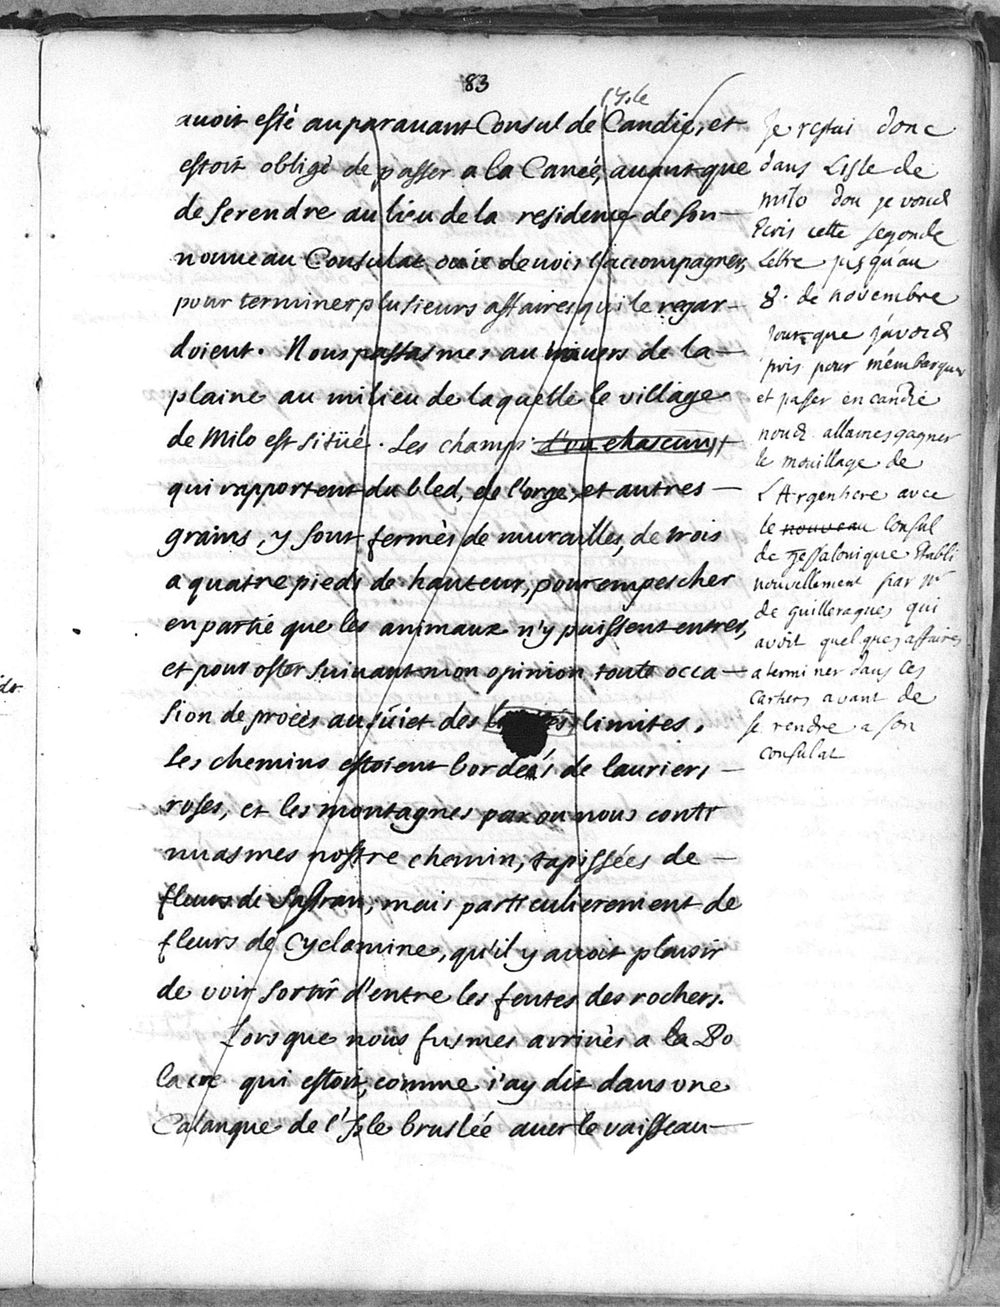 83
l'Isle
avoit esté auparavant Consul de Candie, et
estoit obligé de passer a la Canée, avant que
de se rendre au lieu de la residence de son
nouveau Consulat, ou ie devois l'accompagner,
pour terminer plusieurs affaires qui le regar-
doient. Nous passasmes au travers de la
plaine au milieu de laquelle le village
de Milo est sitüé. Les champs d'un chascun
qui rapportent du bled, de l'orge, et autres
grains, y sont fermés de murailles, de trois
a quatre pieds de hauteur, pour empescher
en partie que les animaux n'y puissent entrer,
et pour oster suivant mon opinion toute occa-
sion de procés au sujet des limites.
Les chemins estoient bordés de lauriers
roses, et les montagnes par ou nous conti
nuasmes nostre chemin, tapissées de
fleurs de Saffran, mais particulierement de
fleurs de Cyclamine, qu'il y avoit plaisir
de voir sortir d'entre les fentes des rochers.
Lorsque nous fusmes arrivés a la Po
lacre qui estoit, comme i'ay dit dans une
Calanque de l'Isle bruslée avec le vaisseau
Je restai donc
dans L'isle de
milo dou je vous
Ecris cette segonde
Lettre jusqu'au
8. de novembre
jour que j'avois
pris pour m'embarquer
et passer en candie
nous allames gagner
le mouillage de
L'Argentiere avec
le nouveau Consul
de Tessalonique Etabli
nouvellement par Mr
de guilleragues qui
avoit quelques affaires
a terminer dans ces
cartiers avant de
se rendre a son
consulat